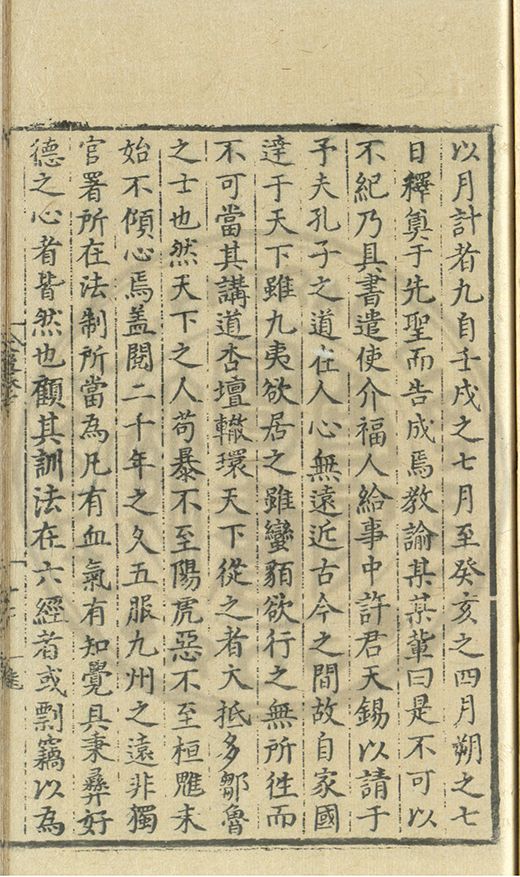 以月計者九自壬戌之七月至癸亥之四月朔之七
日釋奠于先聖而告成焉教諭某某輩曰是不可以
不紀乃具書遣使介福人給事中許君天錫以請于
予夫孔子之道在人心無遠近古今之間故自家國
達于天下雖九夷欲居之雖蠻貊欲行之無所徃而
不可當其講道杏壇轍環天下從之者大抵多鄒魯
之士也然天下之人苟暴不至陽虎惡不至桓魋未
始不傾心焉盖閱二千年之久五服九州之遠非獨
官署所在法制所當為凡有血氣有知覺具秉彝好
德之心者皆然也顧其訓法在六經者或剽竊以為